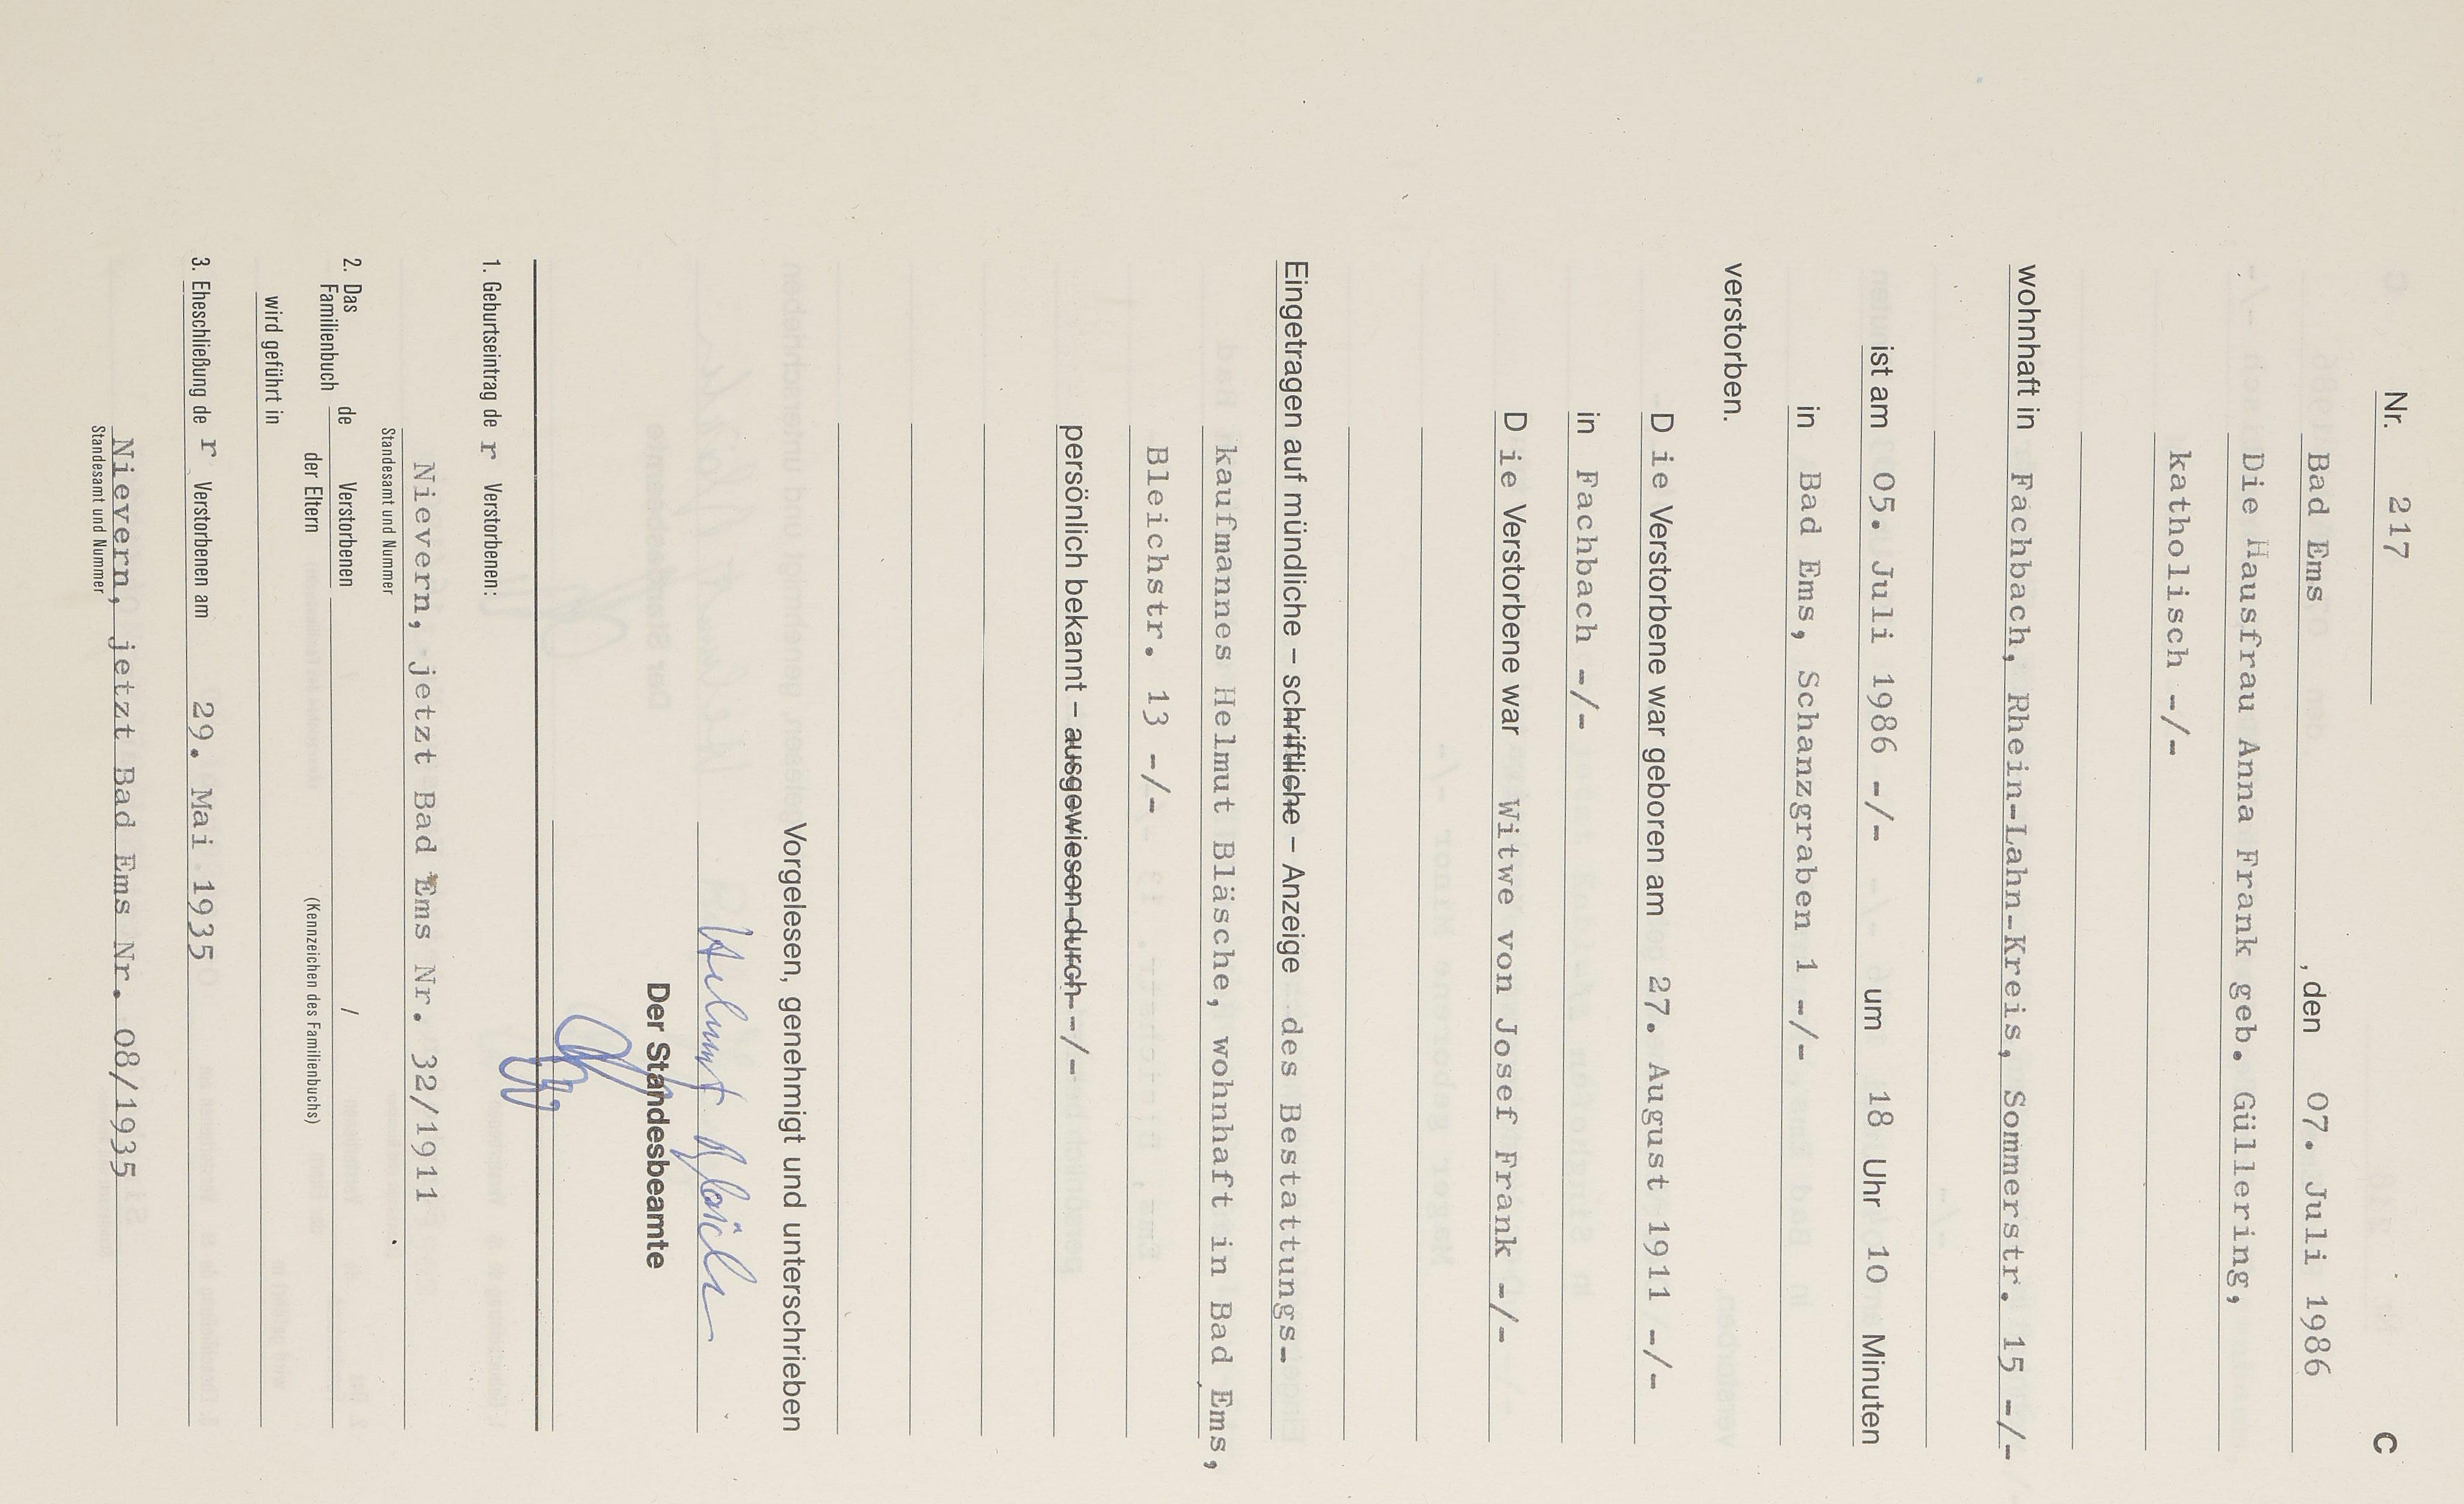 Nr. 217 C
Bad Ems, den 07. Juli 1986
Die Hausfrau Anna Frank geb. Güllering,
katholisch -/-
wohnhaft in Fachbach, Rhein-Lahn-Kreis, Sommerstr. 15 -/-
ist am 05. Juli 1986 -/- um 18 Uhr 10 Minuten
in Bad Ems, Schanzgraben 1 -/-
verstorben.
Die Verstorbene war geboren am 27. August 1911 -/-
in Fachbach -/-
Die Verstorbene war Witwe von Josef Frank -/-
Eingetragen auf mündliche – schriftliche – Anzeige des Bestattungs-
kaufmannes Helmut Bläsche, wohnhaft in Bad Ems,
Bleichstr. 13 -/-
persönlich bekannt – ausgewiesen durch -/-
Vorgelesen, genehmigt und unterschrieben
Helmut Bläsche
Der Standesbeamte
1. Geburtseintrag der Verstorbenen:
Nievern, jetzt Bad Ems Nr. 32/1911
Standesamt und Nummer
2. Das Familienbuch de Verstorbenen / 
der Eltern (Kennzeichen des Familienbuchs)
wird geführt in
3. Eheschließung der Verstorbenen am 29. Mai 1935
Nievern, jetzt Bad Ems Nr. 08/1935
Standesamt und Nummer